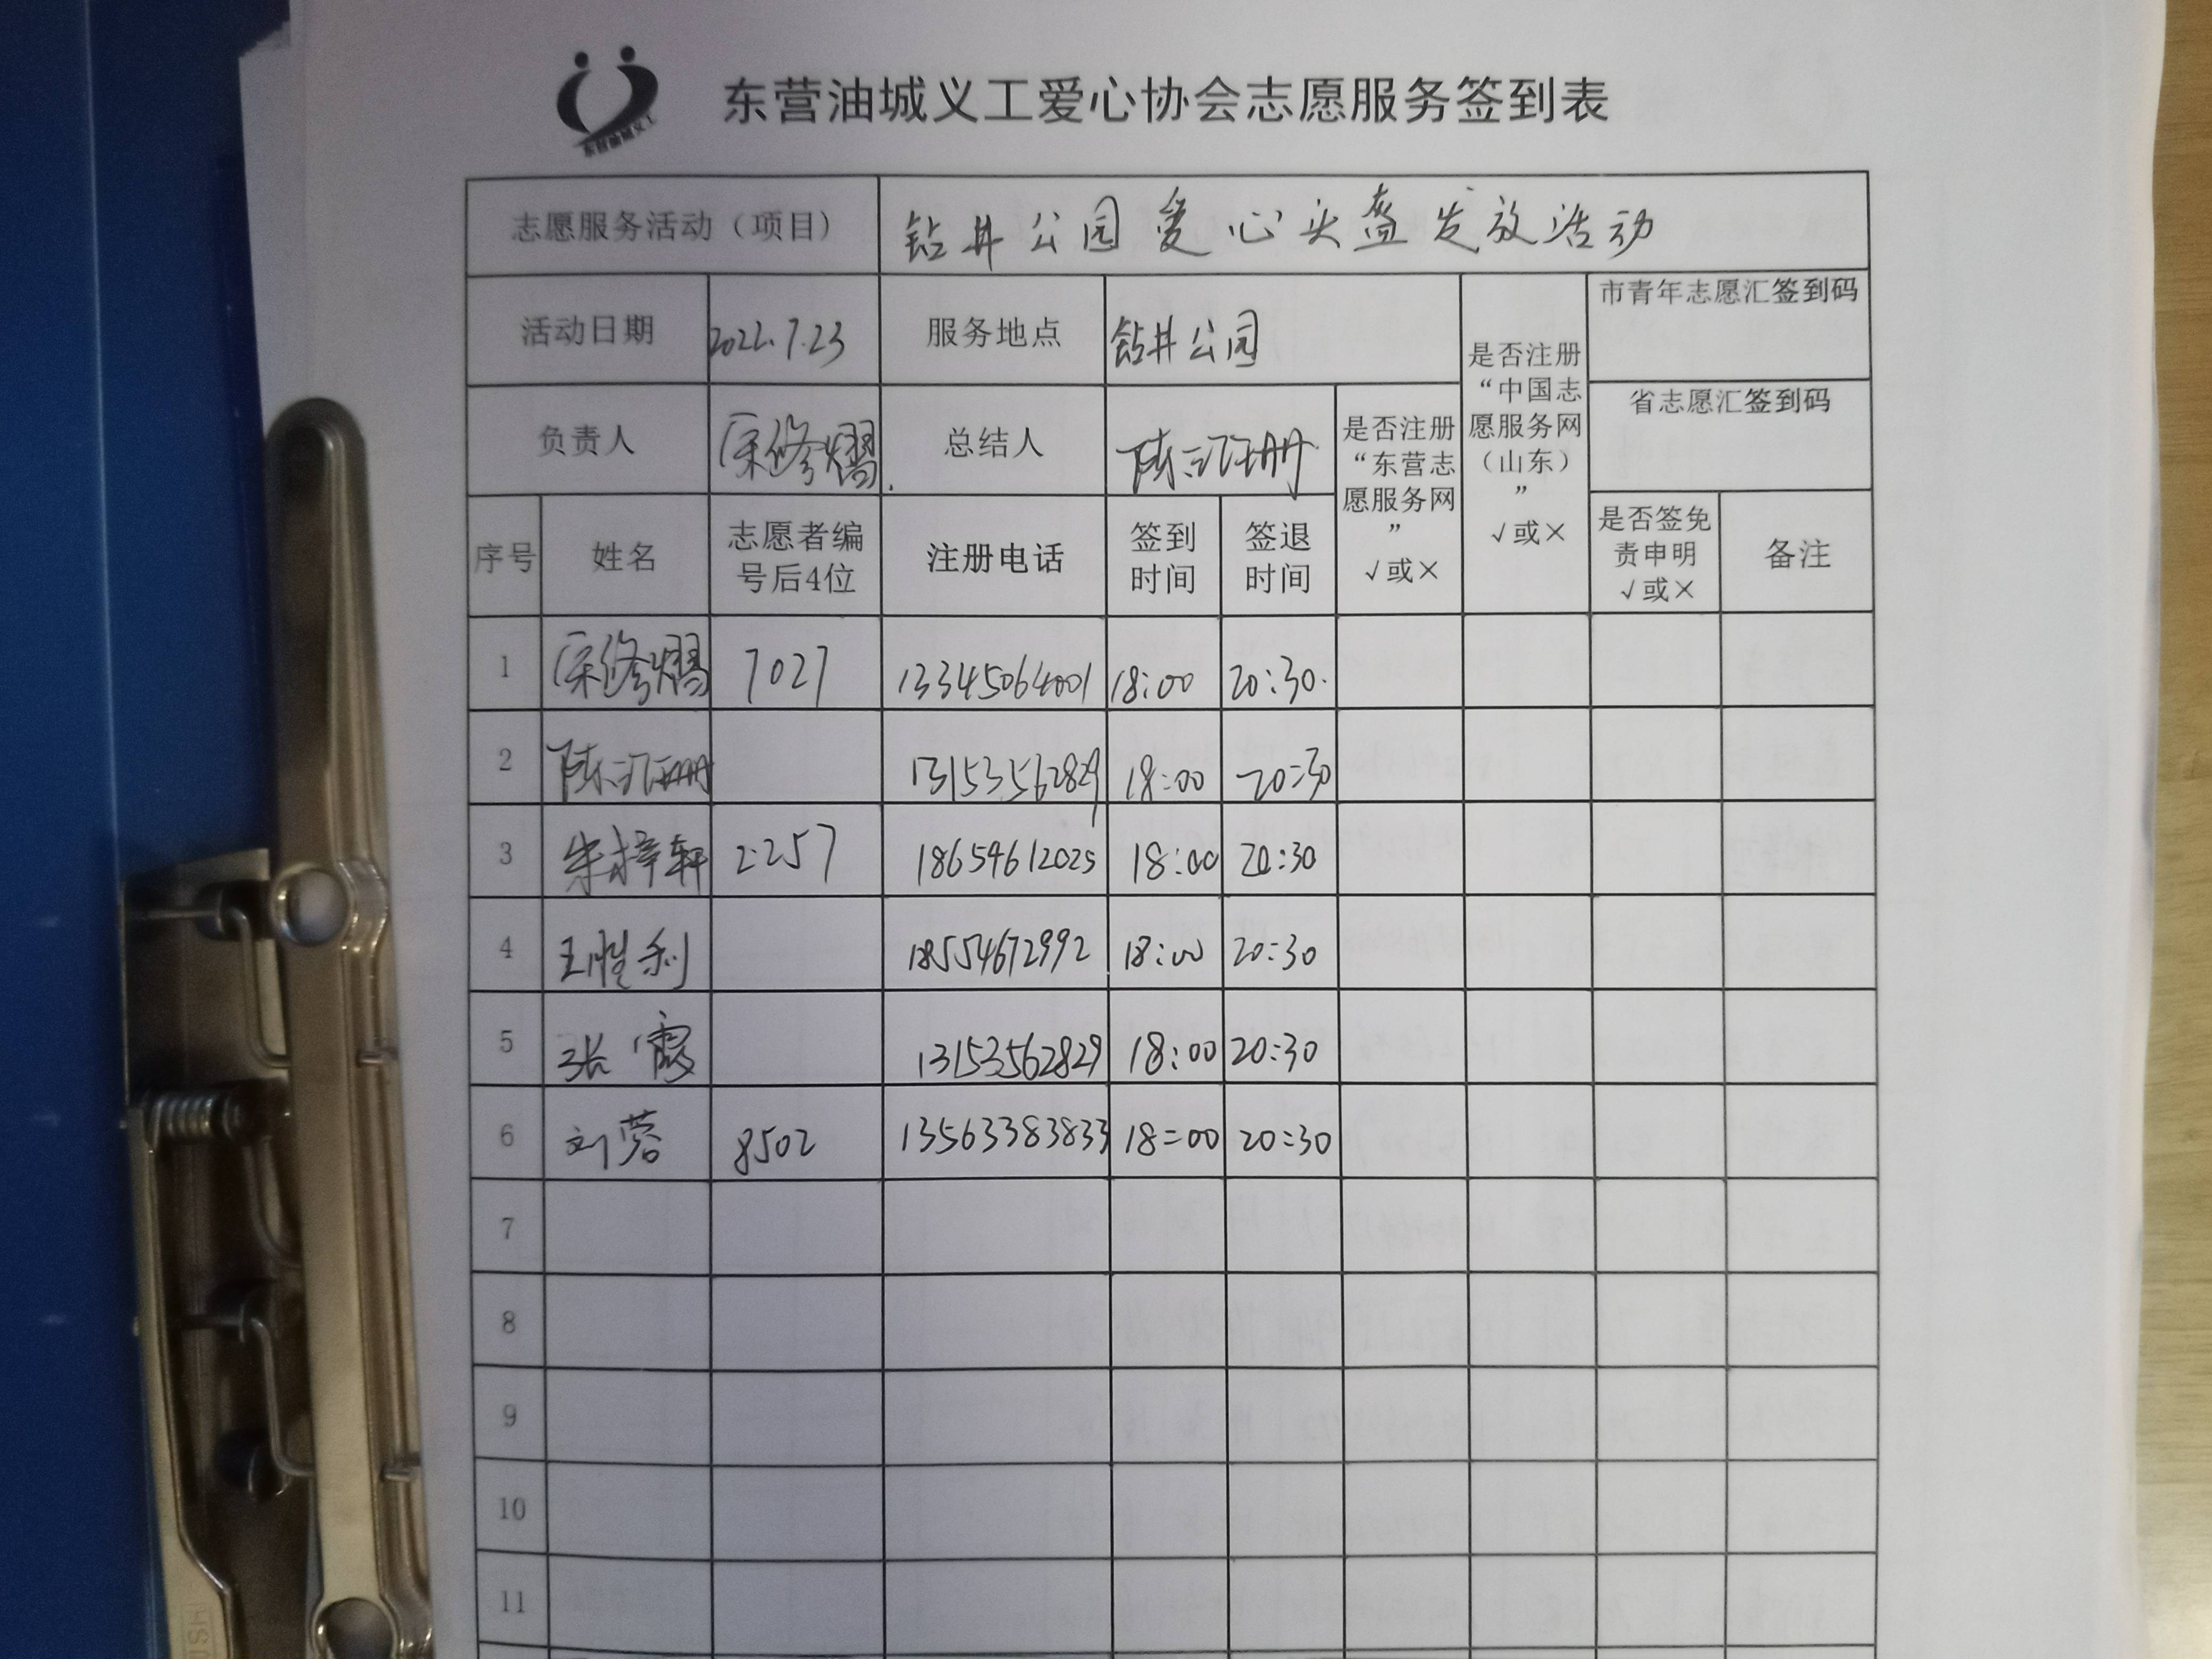 东营油城义工
东营油城义工爱心协会志愿服务签到表
志愿服务活动（项目） 钻井公园爱心头盔发放活动
活动日期 2022.7.23 服务地点 钻井公园
市青年志愿汇签到码
负责人 总结人
省志愿汇签到码
是否注册
“东营志
愿服务网
”
√或×
是否注册
“中国志
愿服务网
（山东）
”
√或×
序号 姓名
志愿者编
号后4位
注册电话
签到
时间
签退
时间
是否签免
责申明
√或×
备注
1 7027 13345064001 18:00 20:30.
2 13153562829 18:00 20:30
3 朱梓轩 2257 18654612025 18:00 20:30
4 王胜利 18554672992 18:00 20:30
5 张霞 13153562829 18:00 20:30
6 刘蓉 8502 13563383833 18:00 20:30
7
8
9
10
11